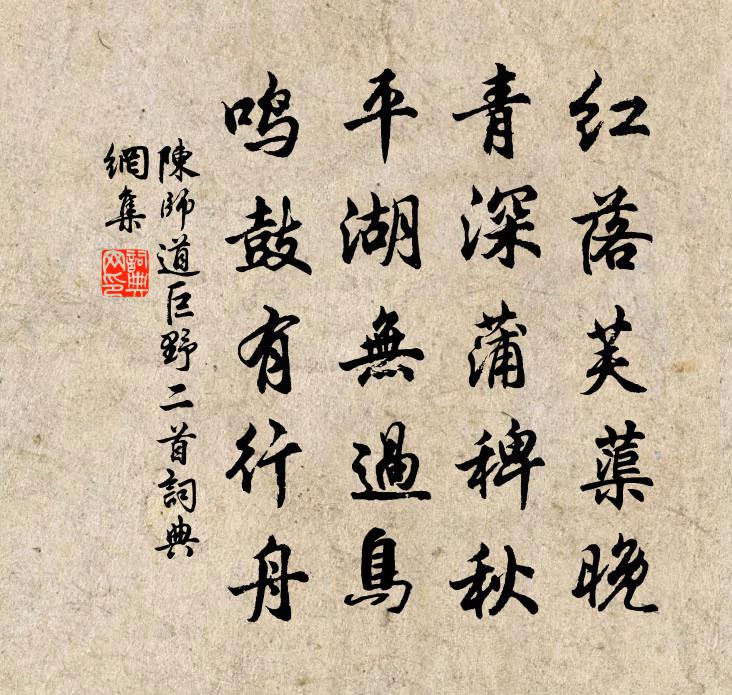 红落芙蕖晚
青深蒲稗秋
平湖無過鳥
鸣鼓有行舟
陳師道巨野二首詞典
網集
詞典
网印